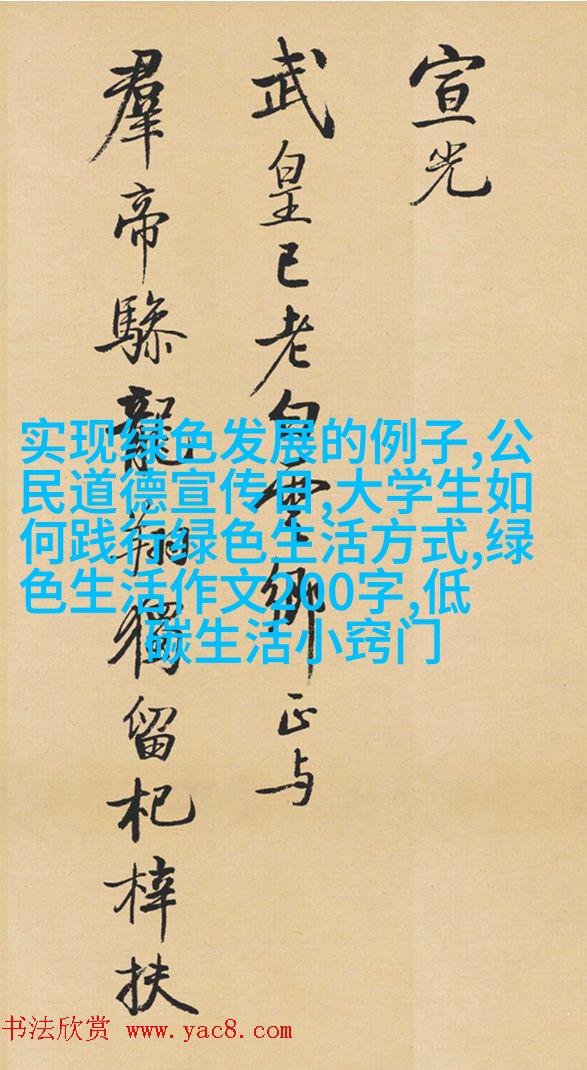 宣光
武皇已老白雲鄉正与
羣帝驂龍翔獨留杞梓扶
实现绿色发展的例子,公
民道德宣传日,大学生如
何践行绿色生活方式,绿
色生活作文200字,低
碳生活小窍门
书法欣赏 www.yac8.com